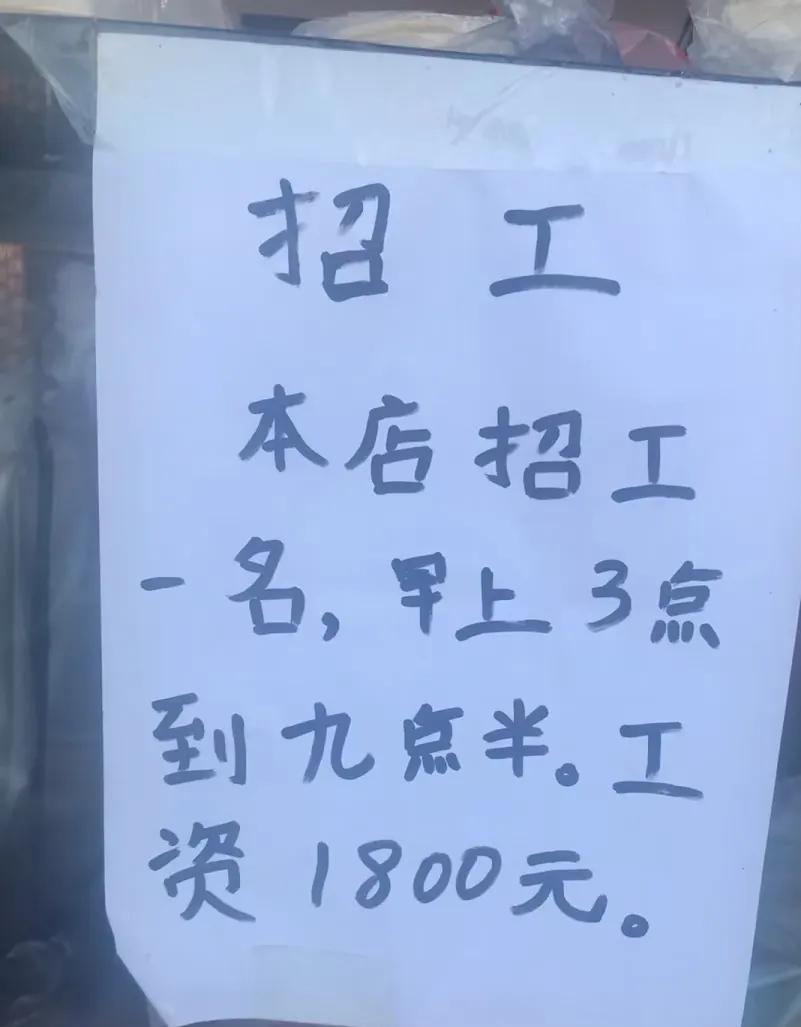 招工
本店招工
一名,早上3点
到九点半。工
资1800元。